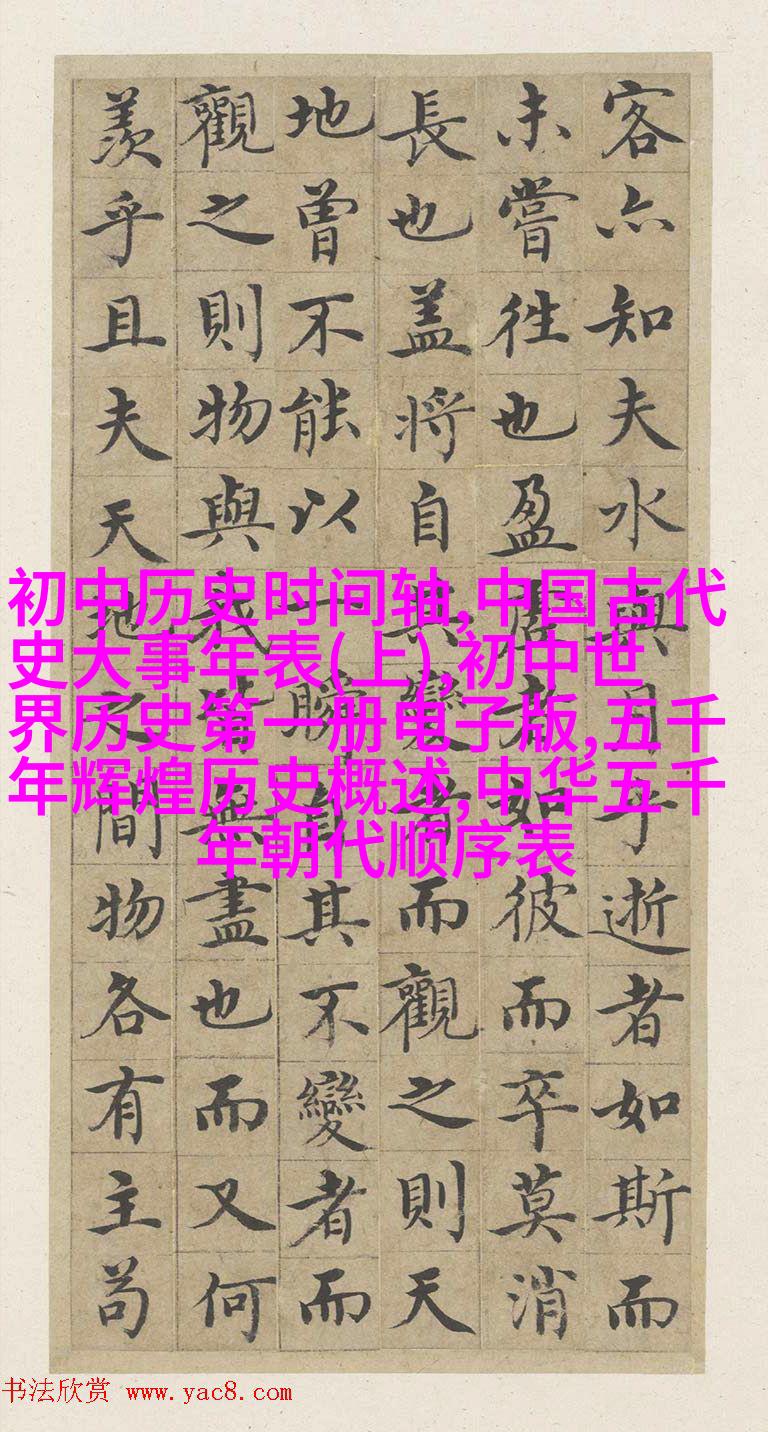 客亦知夫水與月乎逝者如斯而
未嘗往也盈虛者如彼而卒莫消
長也盖將自其變者而觀之則天
地曾不能以一瞬自其不變者而
觀之則物與我皆無盡也而又何
羨乎且夫天地之間物各有主苟
初中历史时间轴,中国古代
史大事年表(上),初中世
界历史第一册电子版,五千
年辉煌历史概述,中华五千
年朝代顺序表
书法欣赏 www.yac8.com